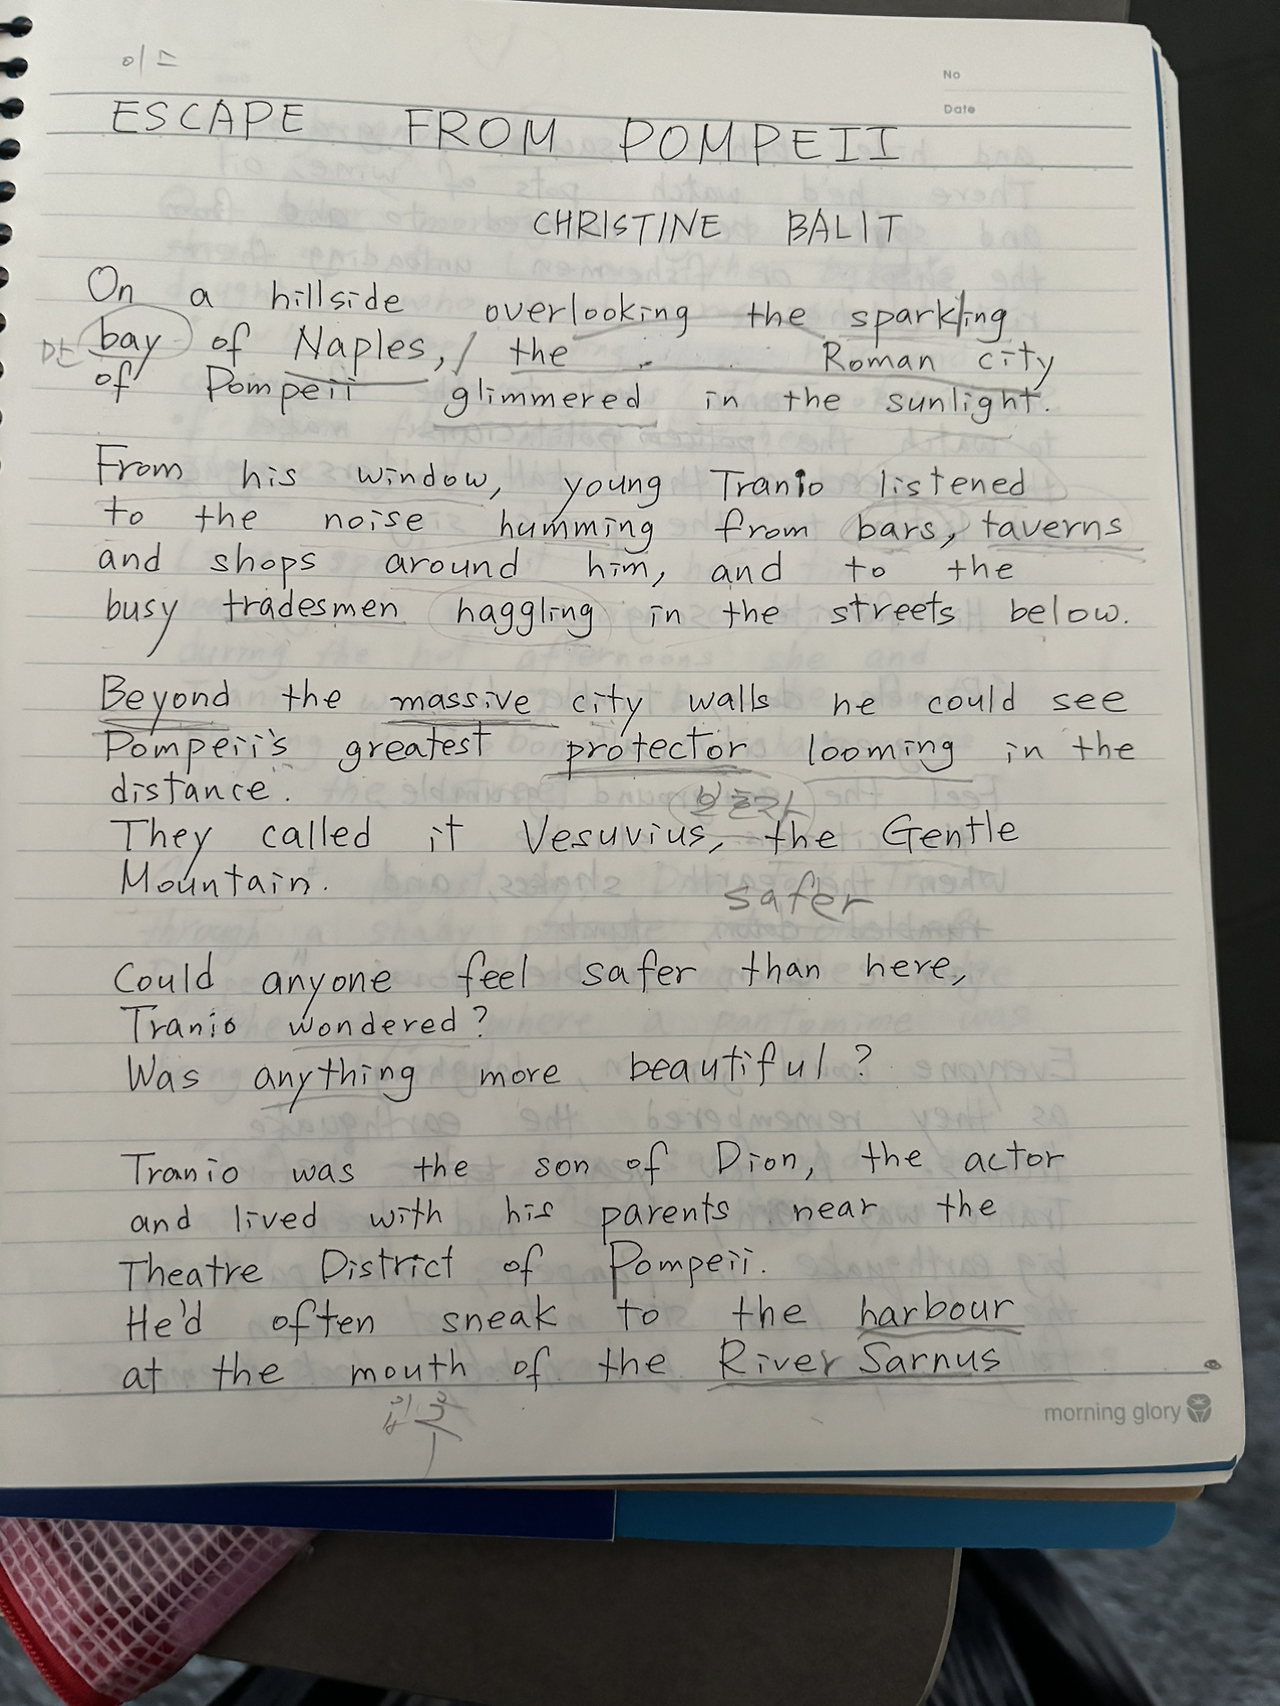 No
Date
ESCAPE FROM POMPEII
CHRISTINE BALIT
On a hillside overlooking the sparkling
만 bay of Naples, / the Roman city
of Pompeii glimmered in the sunlight.
From his window, young Tranio listened
to the noise humming from bars, taverns
and shops around him, and to the
busy tradesmen haggling in the streets below.
Beyond the massive city walls he could see
Pompeii's greatest protector looming in the
distance.
They called it Vesuvius, the Gentle
Mountain.
safer
Could anyone feel safer than here,
Tranio wondered?
Was anything more beautiful?
Tranio was the son of Dion, the actor
and lived with his parents near the
Theatre District of Pompeii.
He'd often sneak to the harbour
at the mouth of the River Sarnus
morning glory